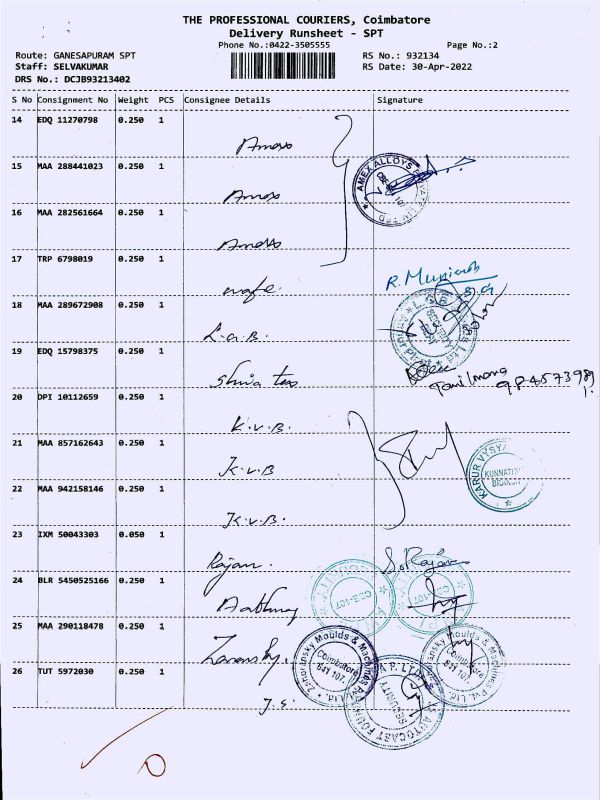 THE PROFESSIONAL COURIERS, Coimbatore
Delivery Runsheet - SPT
Phone No.:0422-3505555
Page No.:2
Route: GANESAPURAM SPT
RS No.: 932134
Staff: SELVAKUMAR
RS Date: 30-Apr-2022
DRS No.: DCJB93213402
S No Consignment No Weight PCS Consignee Details Signature
14 EDQ 11270798 0.250 1
AMEX ALLOYS
15 MAA 288441023 0.250 1
16 MAA 282561664 0.250 1
17 TRP 6798019 0.250 1
18 MAA 289672908 0.250 1
L.G.B.
19 EDQ 15798375 0.250 1
Shiva
20 DPI 10112659 0.250 1
K.V.B.
21 MAA 857162643 0.250 1
K.V.B
KARUR VYSYA
KUNNATH
BRANCH
22 MAA 942158146 0.250 1
K.V.B.
23 IXM 50043303 0.050 1
Rajan. S. Rajan
24 BLR 5450525166 0.250 1
25 MAA 290118478 0.250 1
Zaransky.
Zaoransky Moulds & Machines
Coimbatore
641 107.
Moulds & Machines Pvt. Ltd.
Coimbatore
641 107.
26 TUT 5972030 0.250 1
J.S.
AUTOCAST
SECURITY